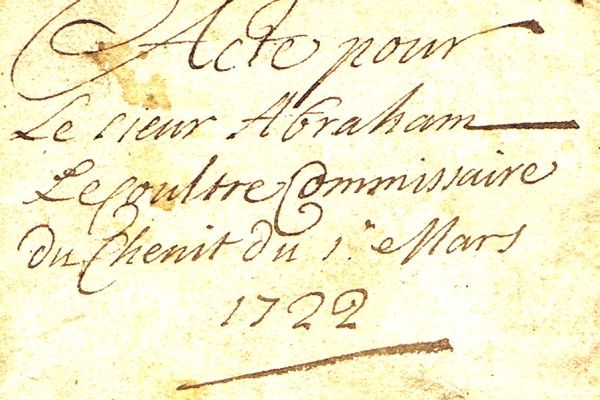 Acte pour
Le sieur Abraham
LeCoultre Commissaire
du Chenit du 1.r Mars
1722